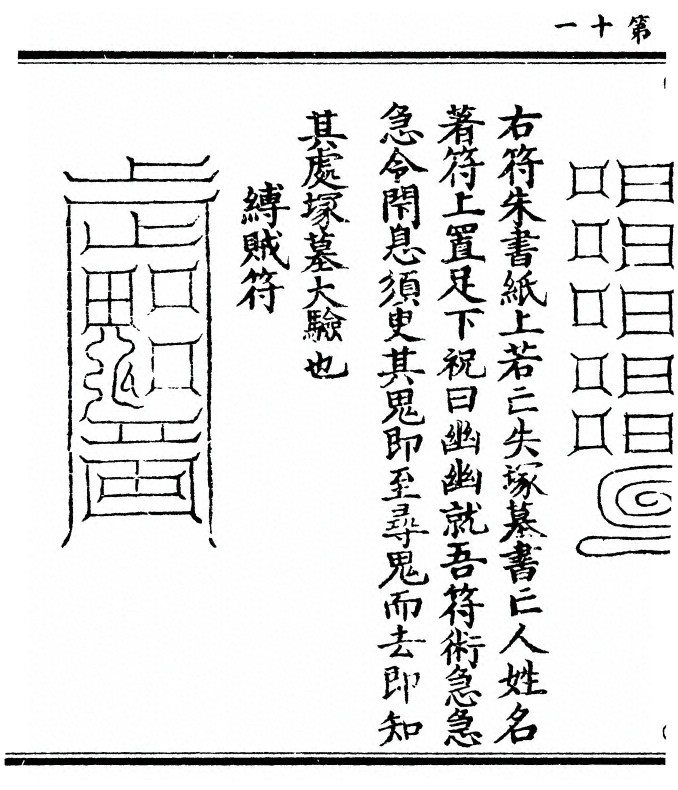 第十一
右符朱書紙上若亡失塚墓書亡人姓名
著符上置足下祝曰幽幽就吾符術急急
急令閉息須臾其鬼即至尋鬼而去即知
其處塚墓大驗也
縛賊符